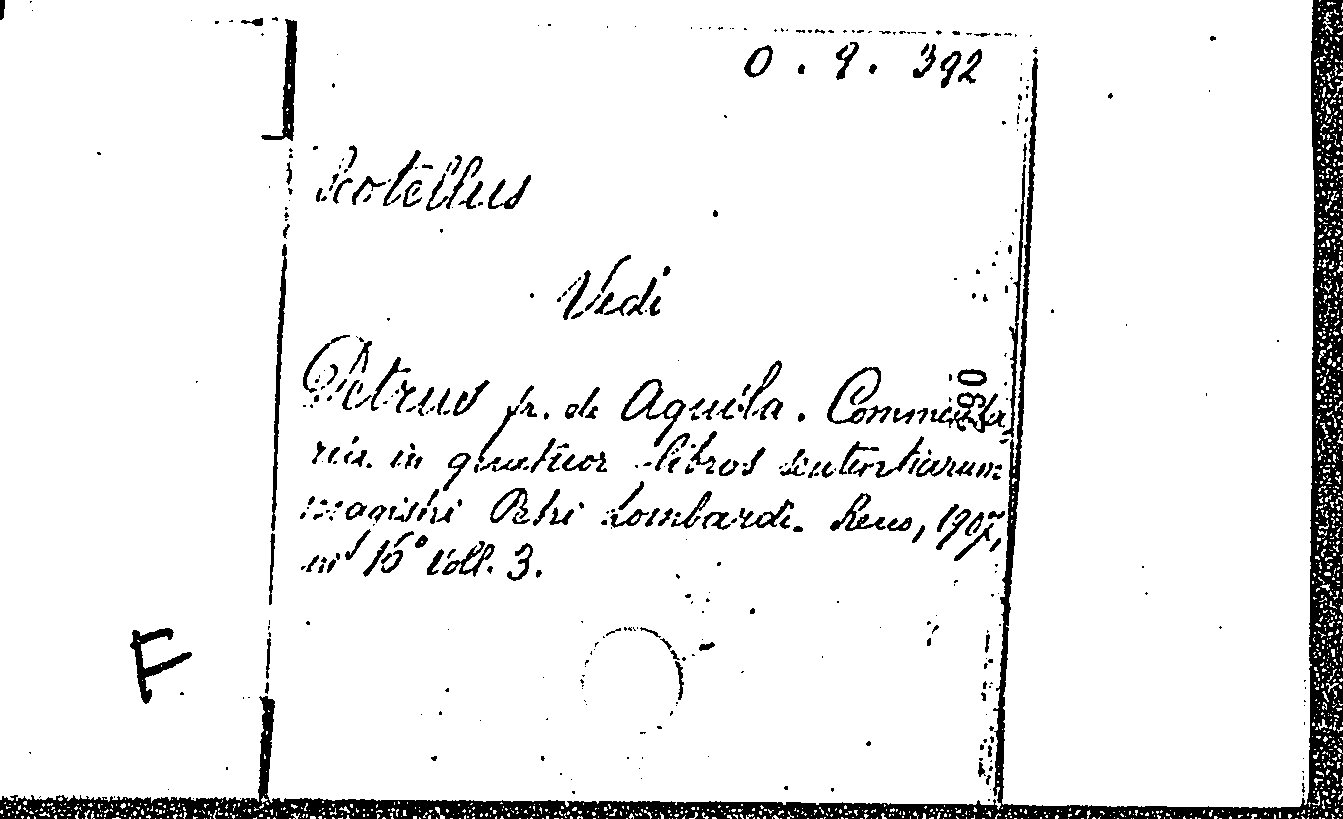 O . 9 . 392
Scotellus
Vedi
Petrus fr. de Aquila. Commenta
ria in quatuor libros sententiarum
magistri Petri Lombardi. Reus, 1907,
in 16° Voll. 3.
290
F